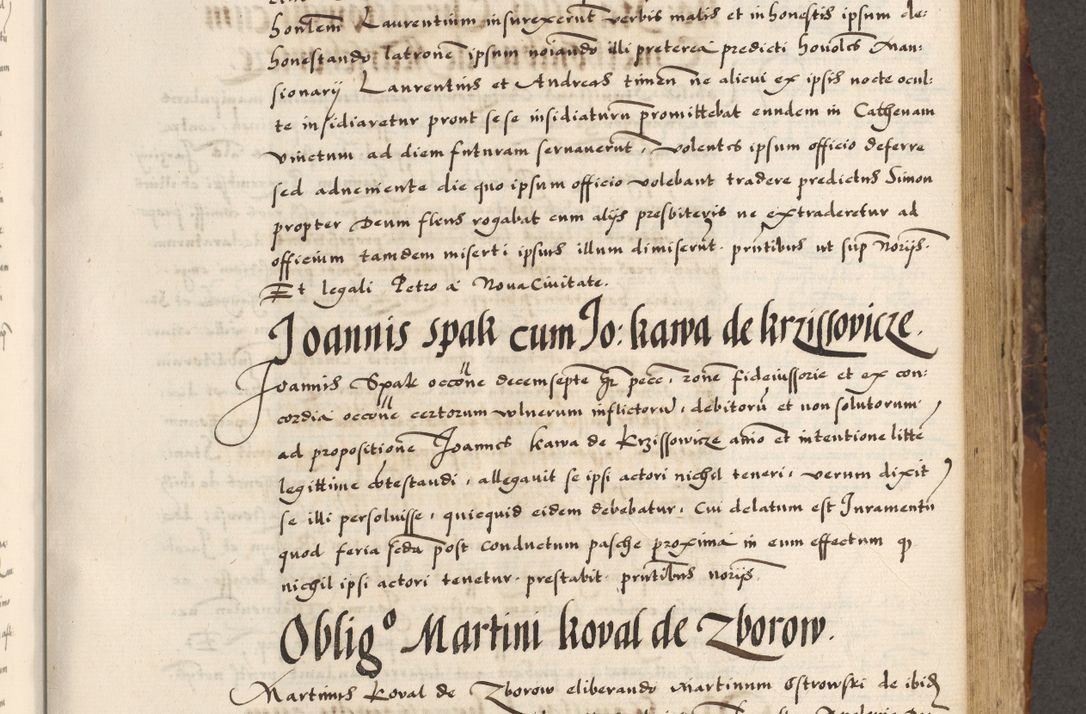 honstem Laurentium insurexerūt verbis malis et inhonestis ipsum de:
honestando latronē ipsum noīando illi preterea predicti honoles Man:
sionarij Laurentius et Andreas timēn ne alicui ex ipsis nocte ocul:
te insidiaretur pront sese insidiaturū promittebat eundem in Cathenam
vinctum ad diem futuram servaverūt, volentes ipsum officio deferre
sed adveniente die quo ipsum officio volebant tradere predictus Simon
propter Deum flens rogabat cum alijs presbiteris ne extraderetur ad
officium tamdem miserti ipsius illum dimiserūt. prntibus ut sup Norijs.
Et legali Petro a Nova Civitate.
Joannis Spak cum Jo: kawa de krzissovicze.
Joannis Spak occōne decemsepte gr pecc, rōne fideiussorie et ex con:
cordia occōne certorum vulnerum inflictorū, debitorū et non solutorum
ad propositionē Joannes kawa de Krzissowicze anīo et intentione litte
legittime cōtestandi, allegavit se ipsi actori nichil teneri, verum dixit
se illi persolvisse, quicquid eidem debebatur, Cui delatum est Juramentū
quod feria scda post conductum pasche proxima in eum effectum qͻ
nichil ipsi actori tenetur. prestabit. prntibus norijs.
Obligº Martini koval de Zborow.
Martinus Koval de Zborow eliberando Martinum Ostrowski de ibid